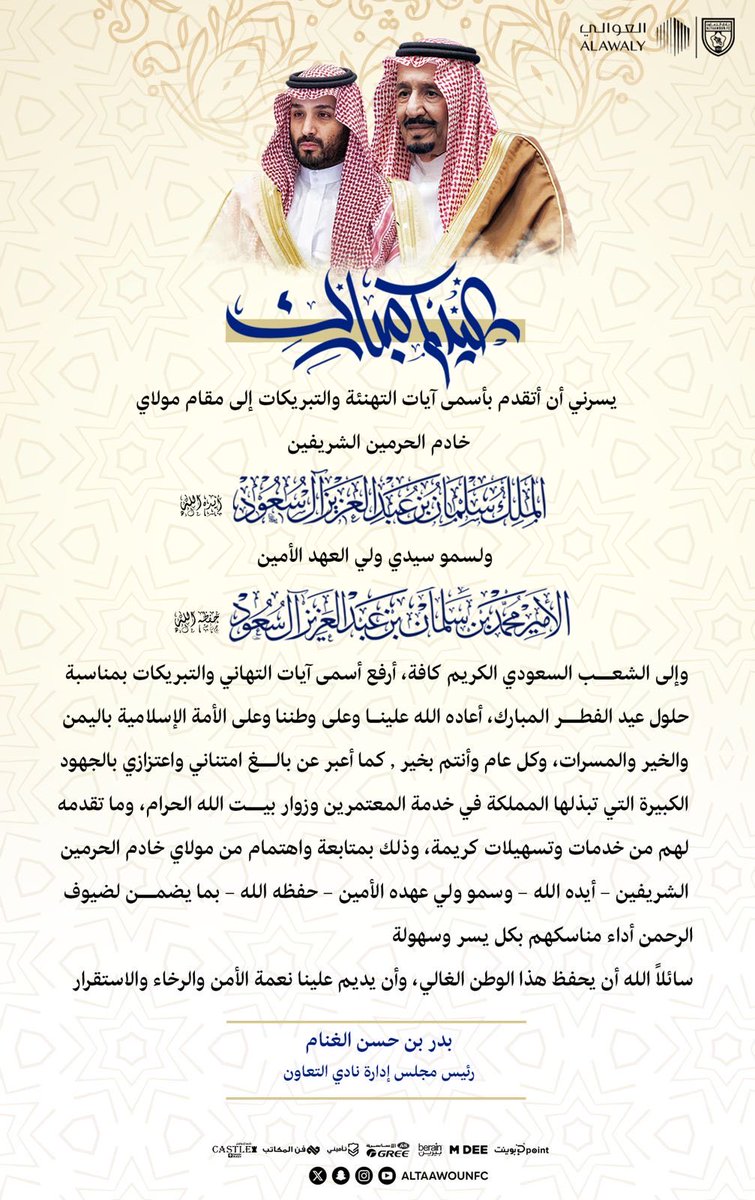 العوالي
ALAWALY
عيدكم مبارك
يسرني أن أتقدم بأسمى آيات التهنئة والتبريكات إلى مقام مولاي
خادم الحرمين الشريفين
الملك سلمان بن عبدالعزيز آل سعود أيده الله
ولسمو سيدي ولي العهد الأمين
الأمير محمد بن سلمان بن عبدالعزيز آل سعود حفظه الله
وإلى الشعـــب السعودي الكريم كافة، أرفع أسمى آيات التهاني والتبريكات بمناسبة
حلول عيد الفطــر المبارك، أعاده الله علينــا وعلى وطننا وعلى الأمة الإسلامية باليمن
والخير والمسرات، وكل عام وأنتم بخير , كما أعبر عن بالــــغ امتناني واعتزازي بالجهود
الكبيرة التي تبذلها المملكة في خدمة المعتمرين وزوار بيـــت الله الحرام، وما تقدمه
لهم من خدمات وتسهيلات كريمة، وذلك بمتابعة واهتمام من مولاي خادم الحرمين
الشريفين – أيده الله – وسمو ولي عهده الأمين – حفظه الله – بما يضمـــن لضيوف
الرحمن أداء مناسكهم بكل يسر وسهولة
سائلاً الله أن يحفظ هذا الوطن الغالي، وأن يديم علينا نعمة الأمن والرخاء والاستقرار
بدر بن حسن الغنام
رئيس مجلس إدارة نادي التعاون
CASTLE فن المكاتب تأميني الأساسية GREE berain بيرين M DEE بوينت Point
ALTAAWOUNFC